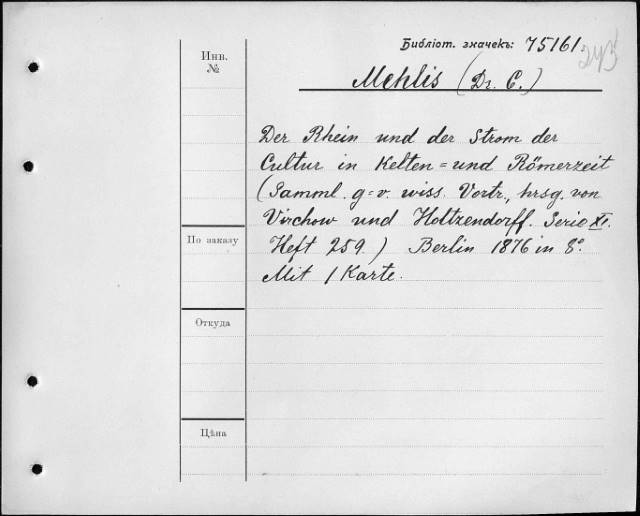 Библіот. значекъ: 75161.
Инв.
№
Mehlis (Dr. C.)
Der Rhein und der Strom der
Cultur in Kelten= und Römerzeit
(Samml. g=v. wiss. Vortr., hrsg. von
Virchow und Holtzendorff. Serie XI.
Heft 259.) Berlin 1876 in 8°.
Mit 1 Karte.
По заказу
Откуда
Цѣна